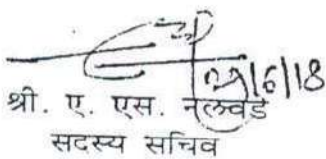 29/6/18
श्री. ए. एस. नलवडे
सदस्य सचिव